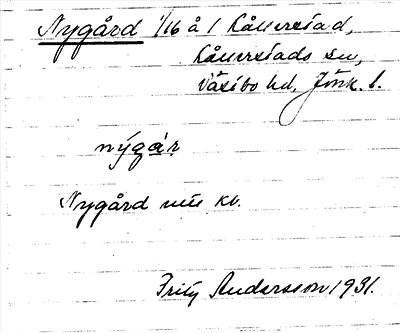 Nygård 1/16 å 1 Kållerstad,
Kållerstads sn,
Västbo hd, Jönk. l.
nýgár
Nygård kb.
Fritz Andersson 1931.